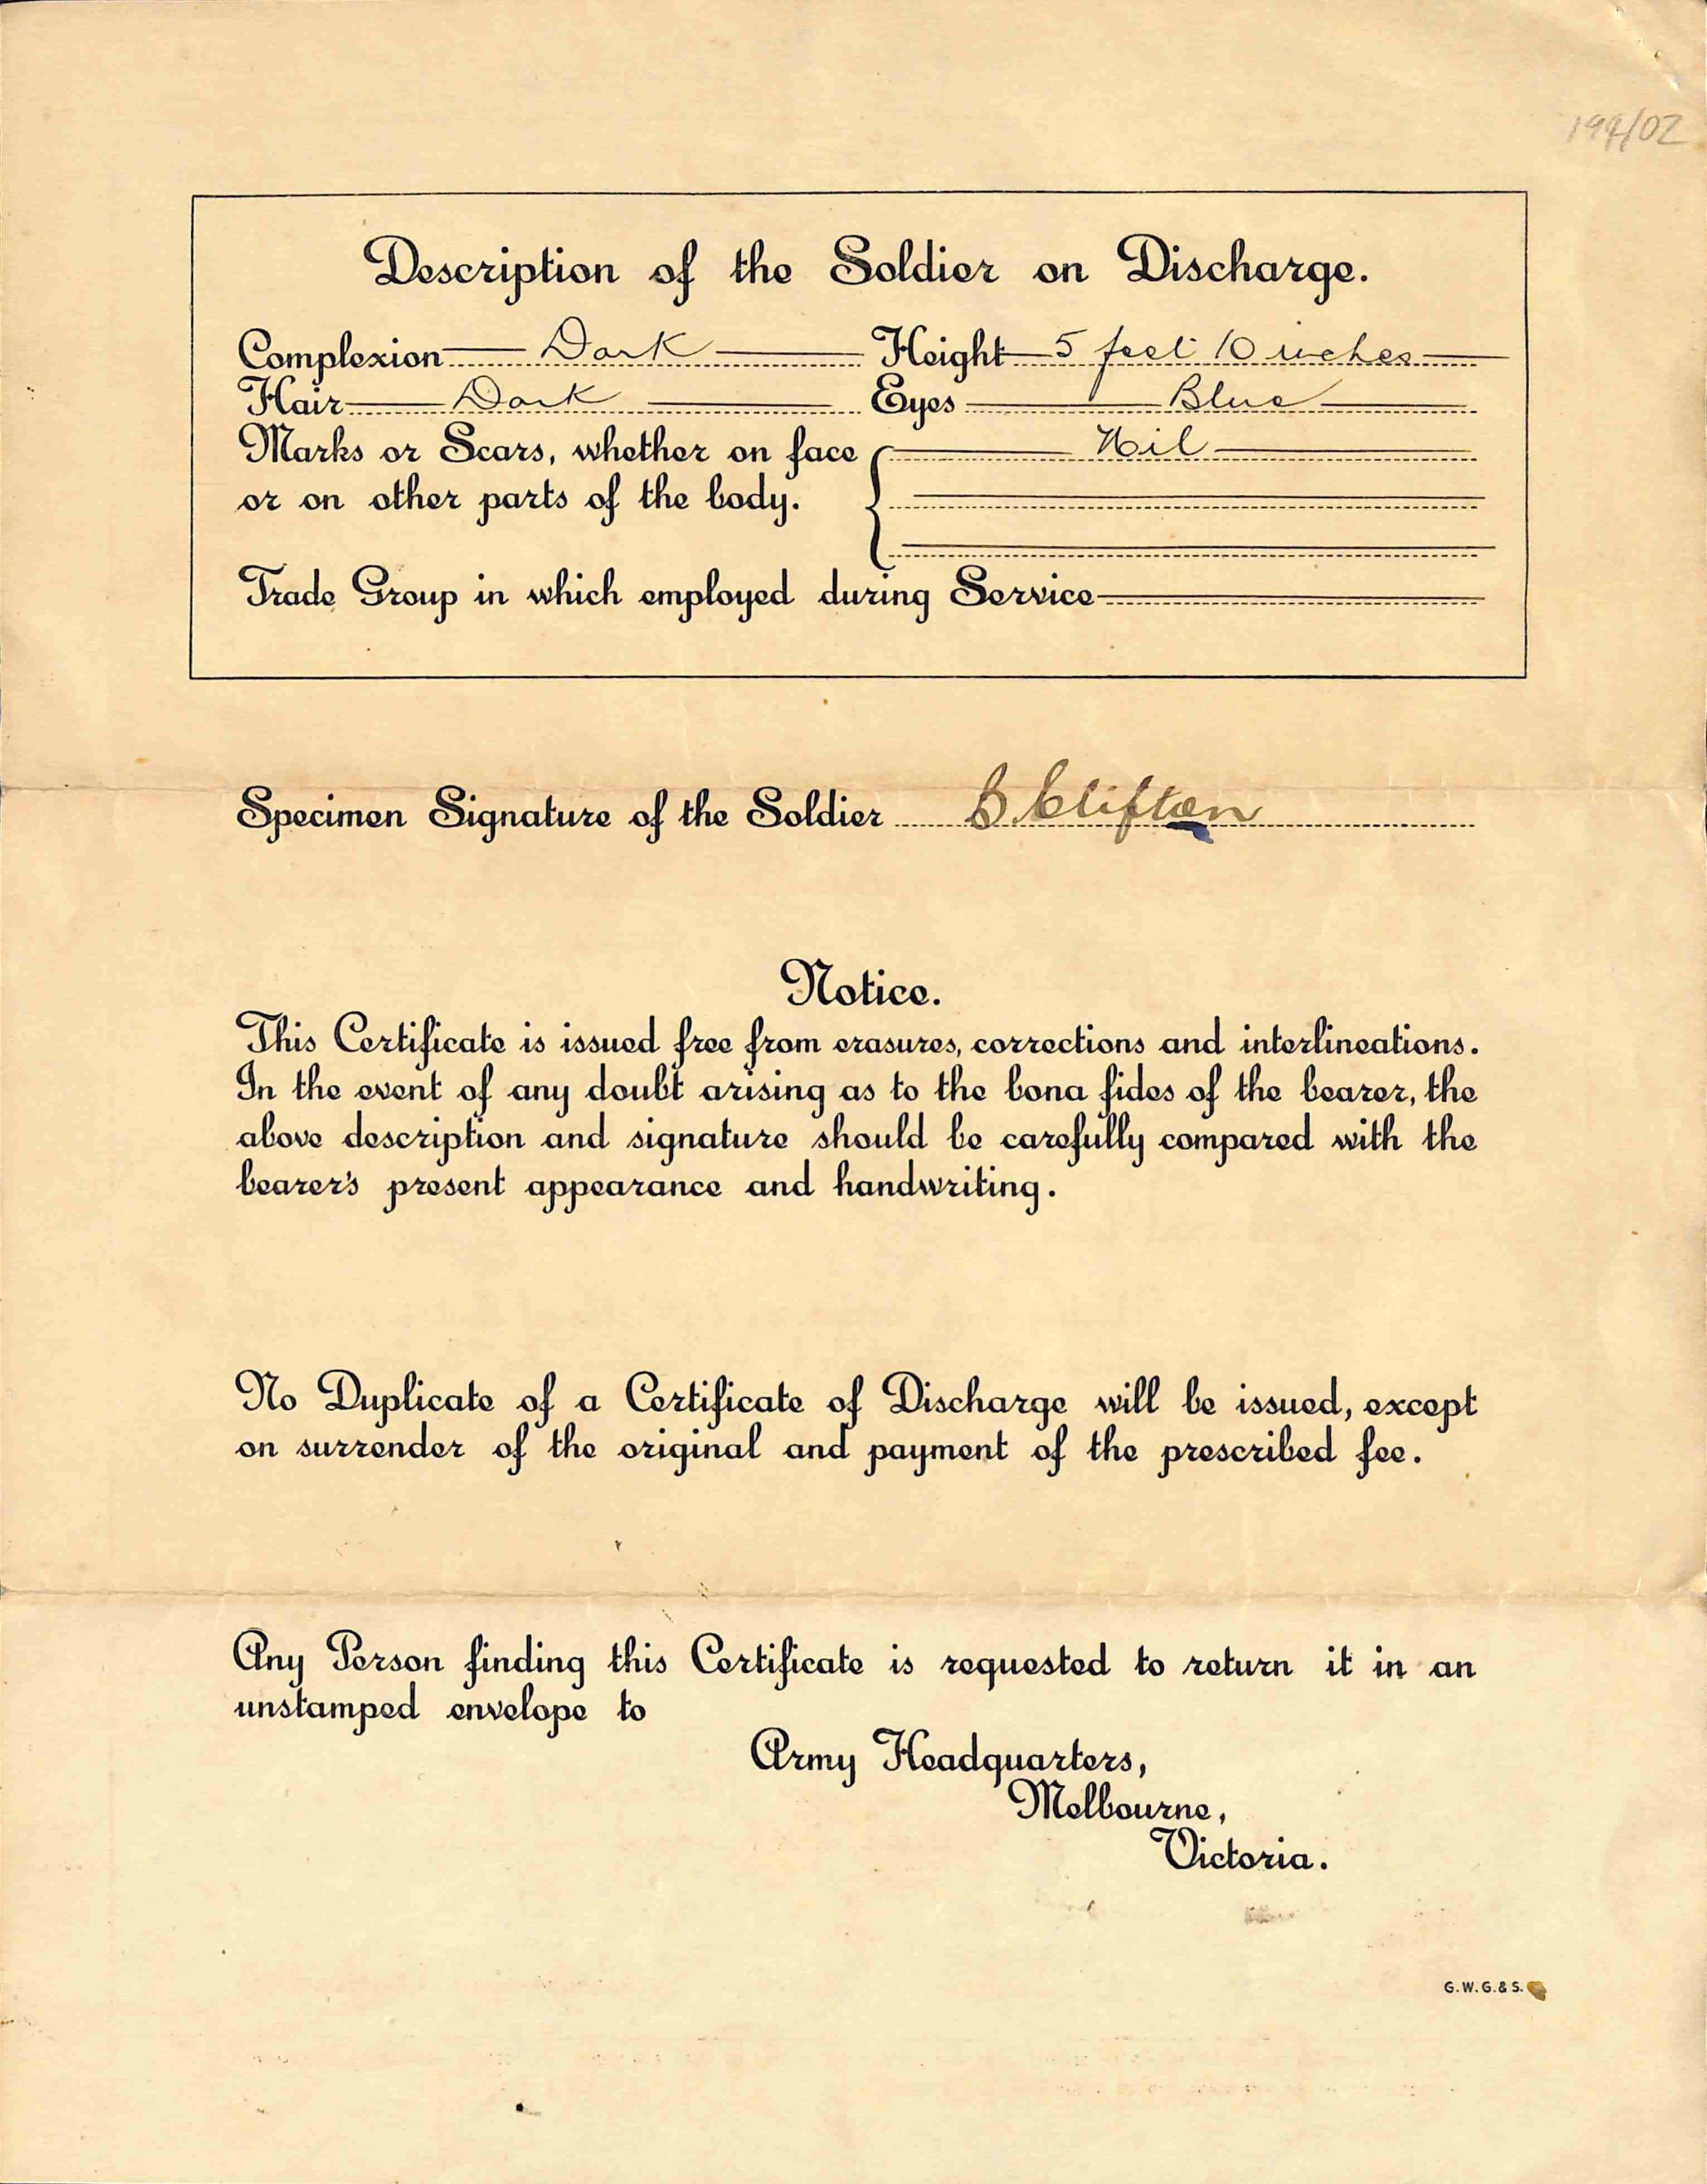 194/02
Description of the Soldier on Discharge.
Complexion Dark Height 5 feet 10 inches
Hair Dark Eyes Blue
Marks or Scars, whether on face Nil
or on other parts of the body.
Trade Group in which employed during Service
Specimen Signature of the Soldier B Clifton
Notice.
This Certificate is issued free from erasures, corrections and interlineations.
In the event of any doubt arising as to the bona fides of the bearer, the
above description and signature should be carefully compared with the
bearer's present appearance and handwriting.
No Duplicate of a Certificate of Discharge will be issued, except
on surrender of the original and payment of the prescribed fee.
Any Person finding this Certificate is requested to return it in an
unstamped envelope to
Army Headquarters,
Melbourne,
Victoria.
G.W.G.& S.